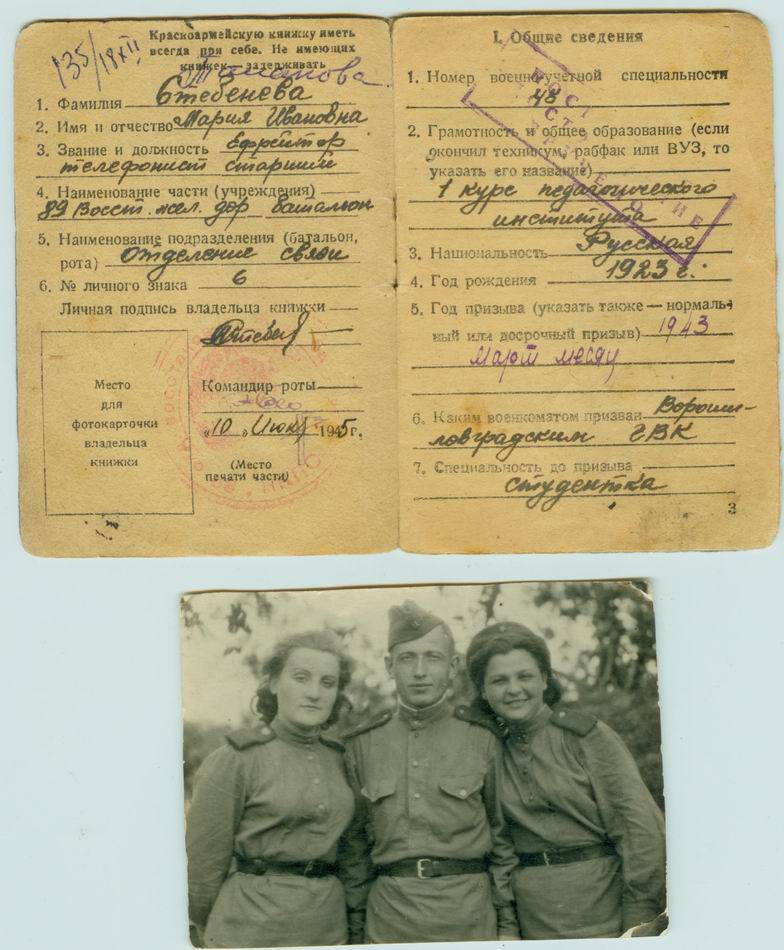 135/18XII
Красноармейскую книжку иметь
всегда при себе. Не имеющих
книжек — задерживать
1. Фамилия Стебенева
2. Имя и отчество Мария Ивановна
3. Звание и должность Ефрейтор
телефонист старший
4. Наименование части (учреждения)
89 Восст. жел. дор батальон
5. Наименование подразделения (батальон,
рота) Отделение связи
6. № личного знака 6
Личная подпись владельца книжки
Место
для
фотокарточки
владельца
книжки
Командир роты
„10„ Июня 1945г.
(Место
печати части)
I. Общие сведения
1. Номер военно-учетной специальности
48
2. Грамотность и общее образование (если
окончил техникум, рабфак или ВУЗ, то
указать его название)
1 курс педагогического
института
3. Национальность Русская
4. Год рождения 1923 г.
5. Год призыва (указать также — нормаль-
ный или досрочный призыв) 1943
Март месяц
6. Каким военкоматом призван Вороши-
ловградским ГВК
7. Специальность до призыва
студентка
3